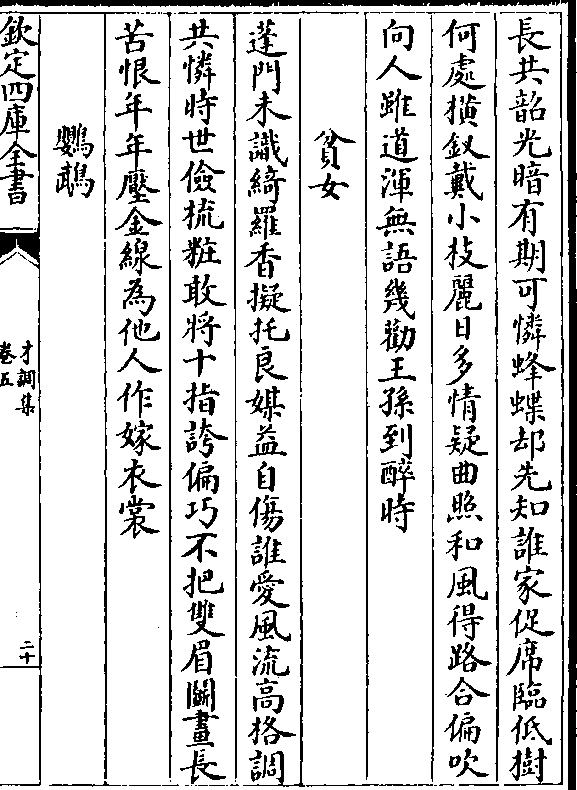 長共韶光暗有期可憐蜂蝶却先知誰家促席臨低樹
何處橫釵戴小枝麗日多情疑曲照和風得路合偏吹
向人雖道渾無語幾勸王孫到醉時
貧女
蓬門未識綺羅香擬托良媒益自傷誰愛風流高格調
共憐時世儉梳粧敢將十指誇偏巧不把雙眉鬭畫長
苦恨年年壓金線為他人作嫁衣裳
鸚鵡
欽定四庫全書
才調集
卷五
二十